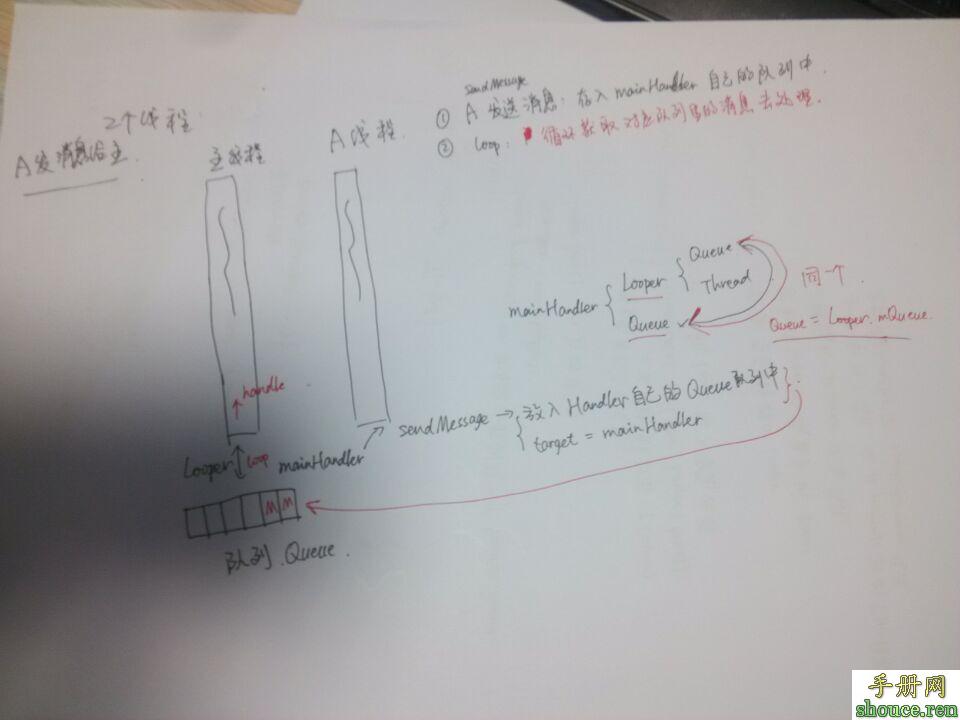 2个线程
A发消息给主
主线程
A线程
sendMessage
① A 发送消息：存入 mainHandler 自己的队列中.
② loop: 循环获取对应队列里的消息去处理.
mainHandler { Looper { Queue
Thread
Queue
同一个
Queue = Looper.mQueue.
handle
Looper
loop
mainHandler
sendMessage → { 放入 Handler 自己的 Queue 队列中 }
target = mainHandler
M M
队列 Queue.
手册网
shouce.ren